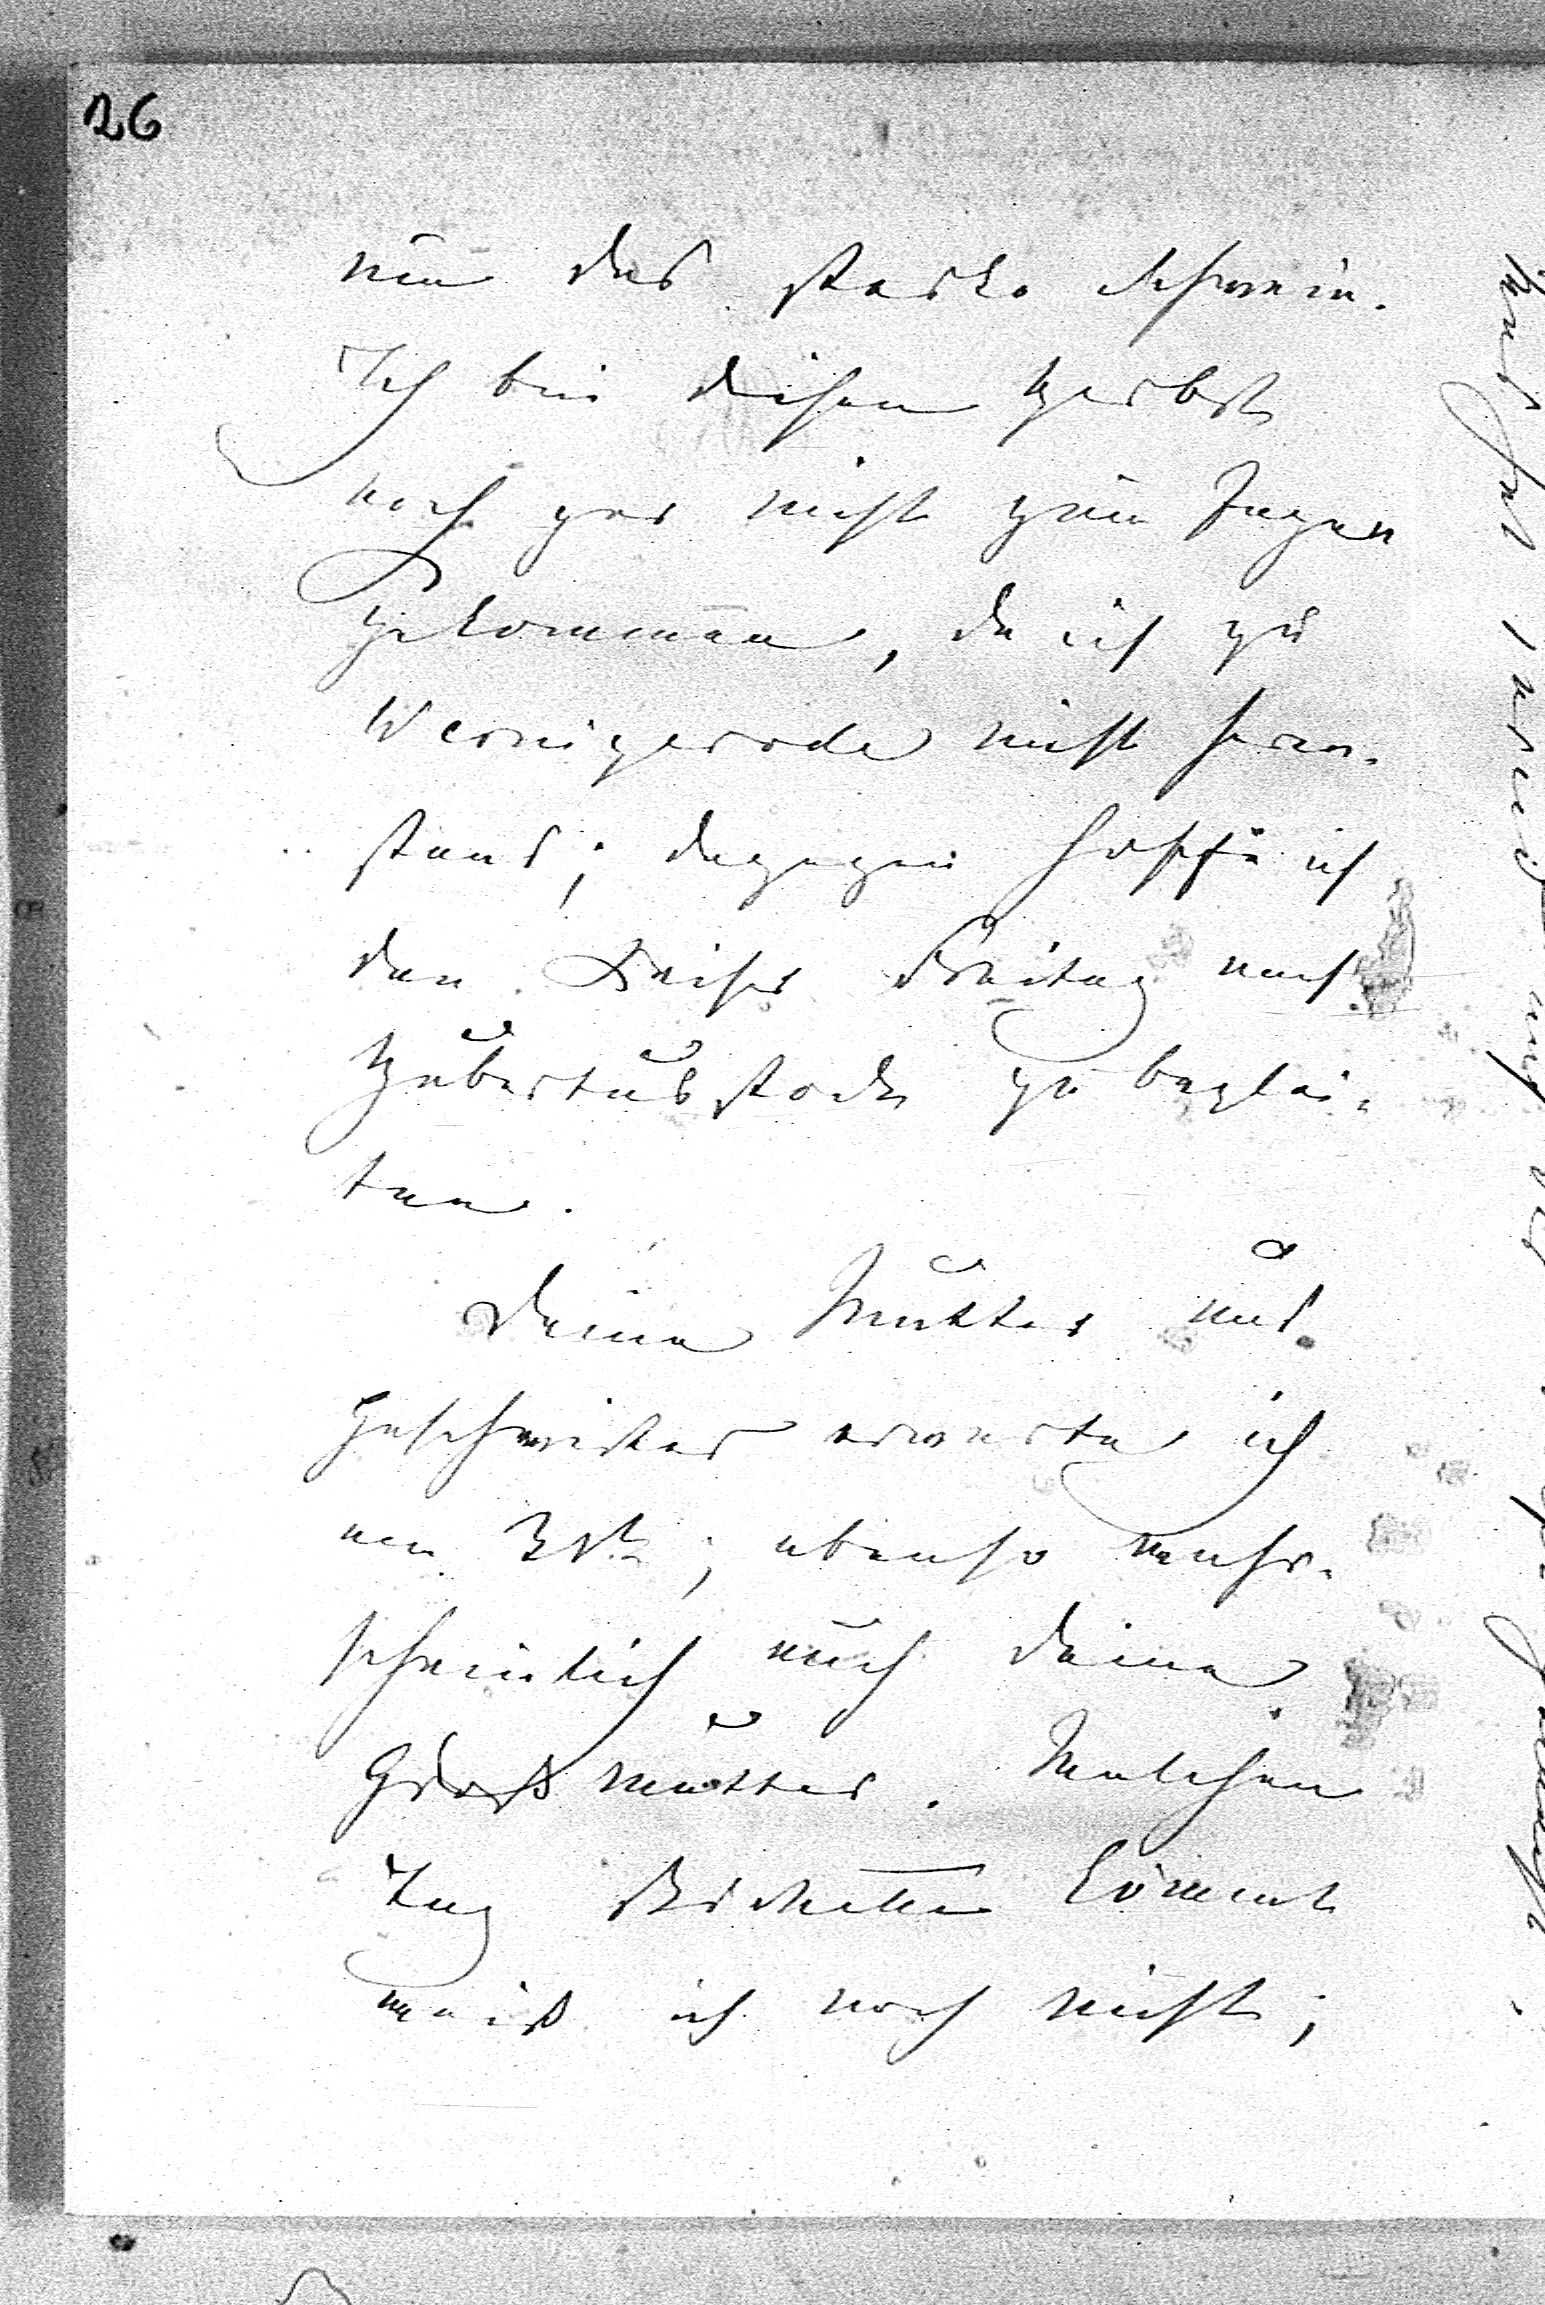 26
nun das starke Schwein.
Ich bin diesen Herbst
noch gar nicht zum Jagen
gekommen, da ich zu
Wernigerode nicht heran-
stand; dagegen hoffe ich
den Kaiser Freitag nach
Hubertusstock zu beglei-
ten.
Deine Mutter und
Geschwister erwarte ich
am 31t; ebenso wahr-
scheinlich auch Deine
Großmutter. Welchen
Tag kommt
weiß ich noch nicht;